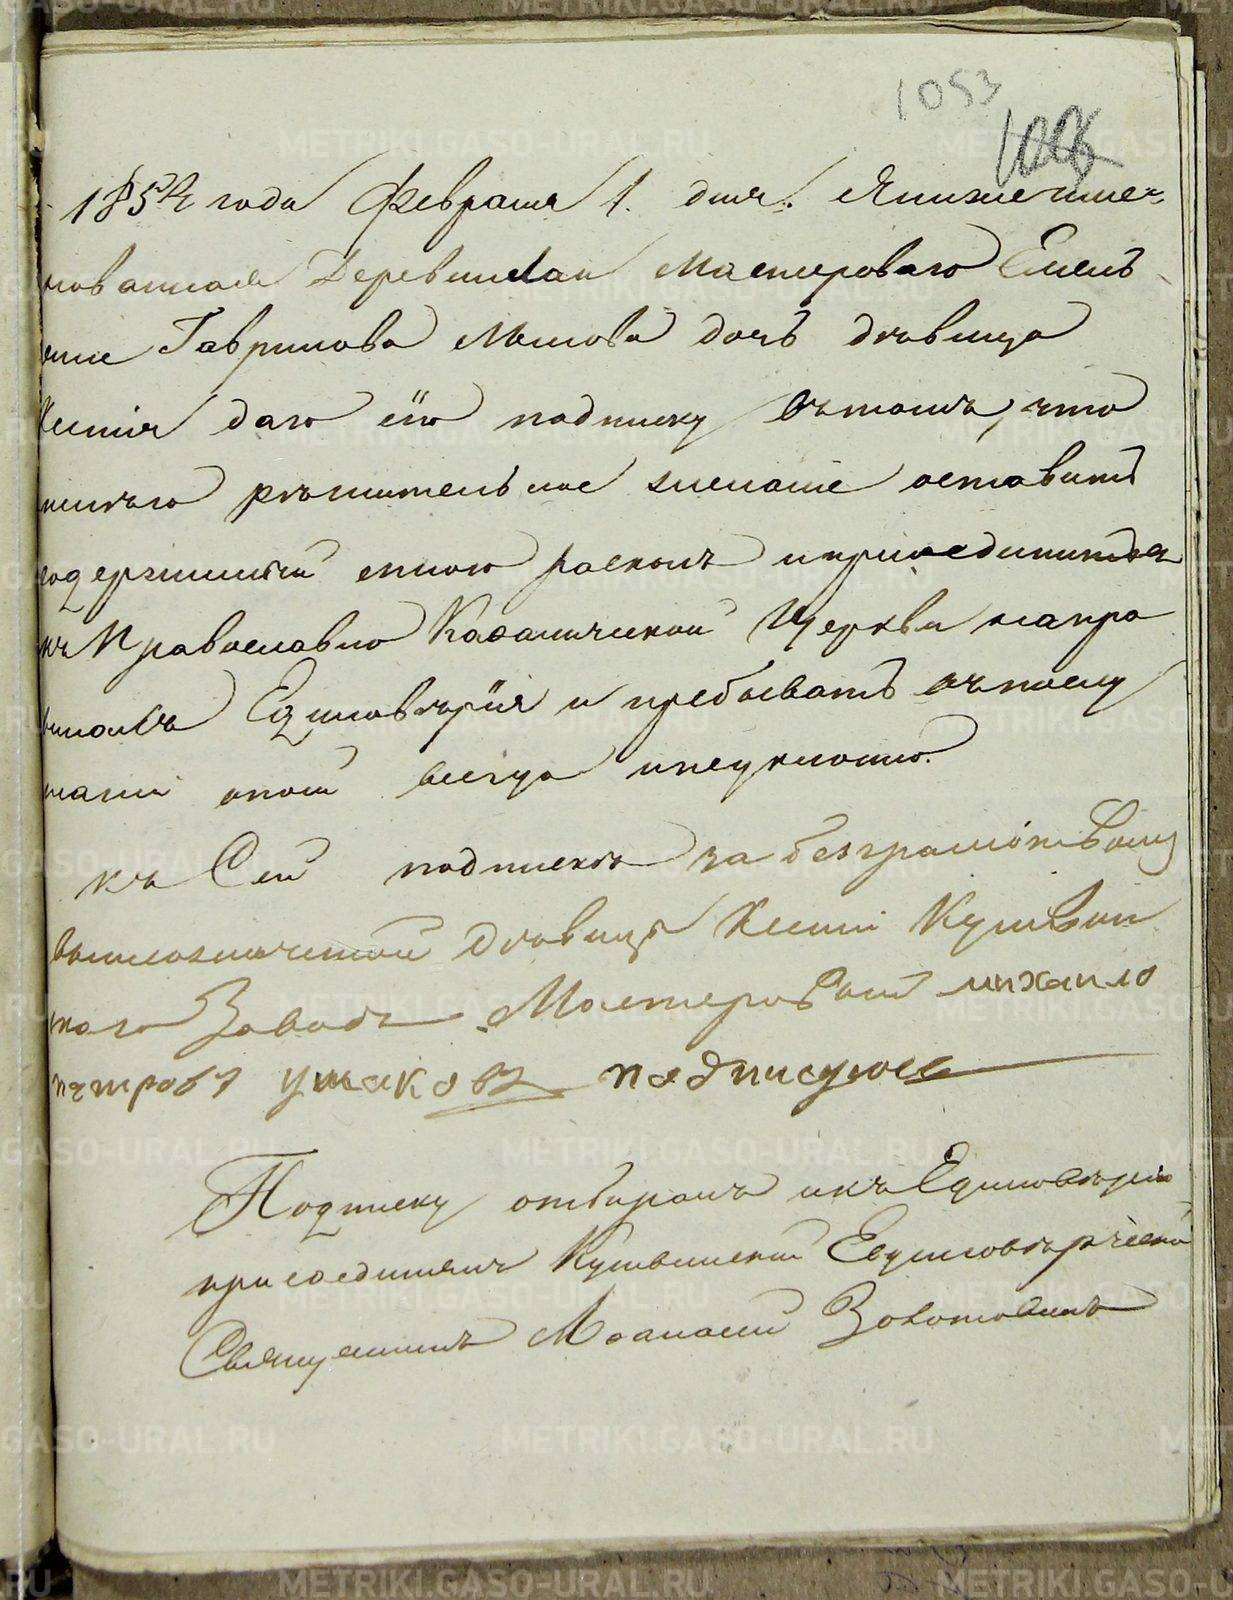 1053
1854 года февраля 1. дня. Я нижеиме-
нованная Деревни Лаи Мастероваго Емель
яна Гаврилова Мышова дочь девица
Ксенія даю сію подписку в томъ, что
имею решительное желаніе оставить
содержимый мною расколъ и присоединиться
къ Православно Кафолической Церкви на пра
вилахъ Единоверія и пребывать въ послу
шаніи оной всегда неуклонно.
къ Сей подписке за безграмотною
вышеозначенной девицы Ксеніи Кушвин
скаго Завода Мастеровой михаило
петровъ ушаковъ подписуюсь
Подписку отбиралъ и къ Единоверію
присоединялъ Кушвинскій Единоверческій
Священникъ Афанасій Золотовинъ
METRIKI.GASO-URAL.RU